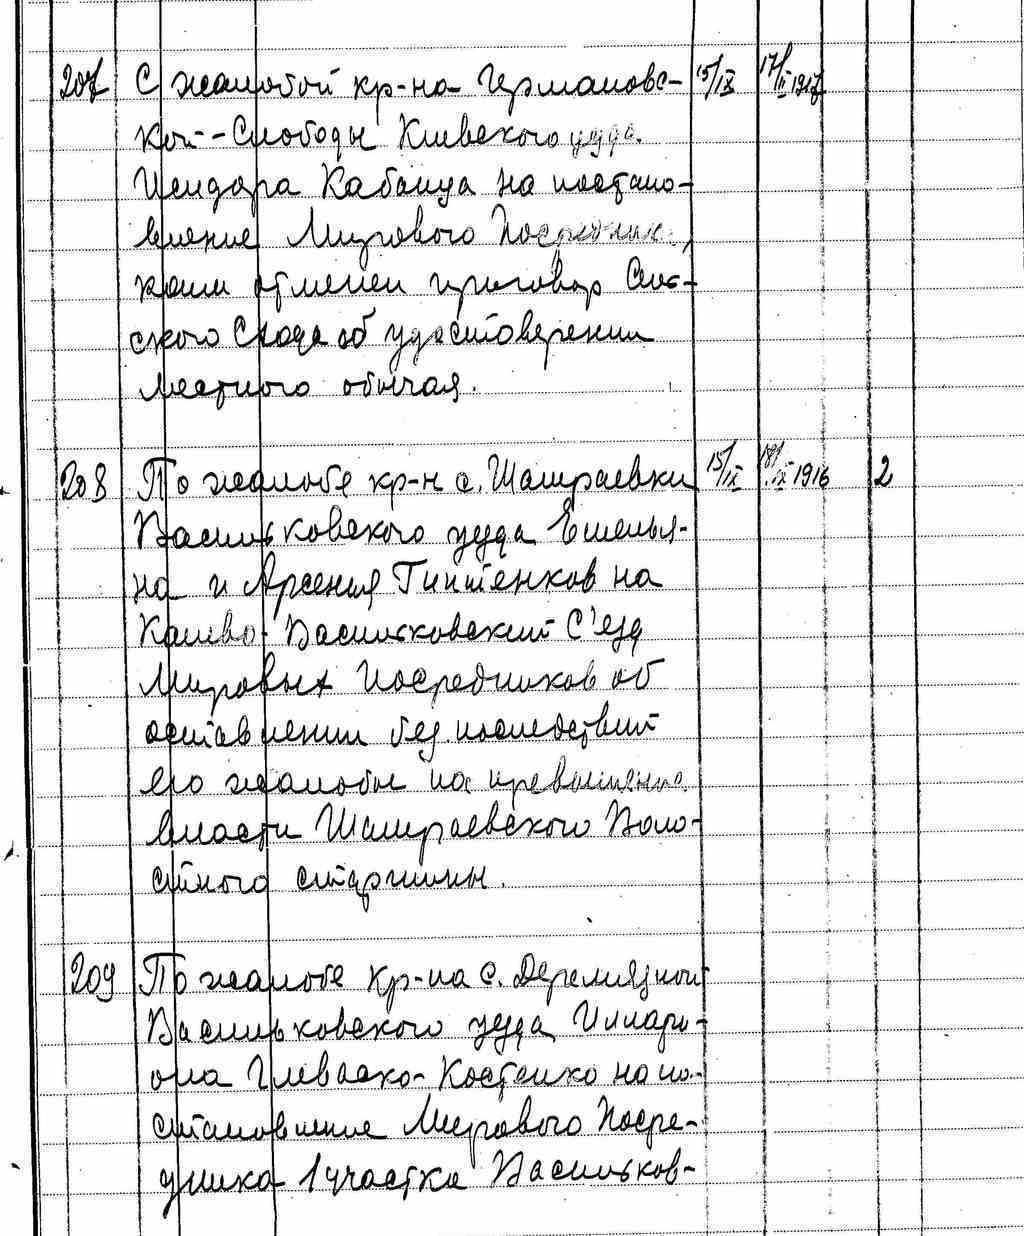 207 С жалобой кр-на Германовс- 15/IX 17/III 1917
кой-Слободы Киевского уезда
Исидора Кабанца на постано-
вление Мирового Посредника,
коим отменен приговор Сель-
ского Схода об удостоверении
местного обычая.
208 По жалобе кр-н с. Шамраевки 15/IX IX 1916 2
Васильковского уезда Емелья-
на и Арсения на
Киево-Васильковский С'езд
Мировых Посредников об
оставлении без последствий
его жалобы на превышение
власти Шамраевского Воло-
стного старшины.
209 По жалобе кр-на с. Деремезной
Васильковского уезда Иллари-
она Глеваско-Костенко на по-
становление Мирового Посре-
дника 1 участка Васильков-